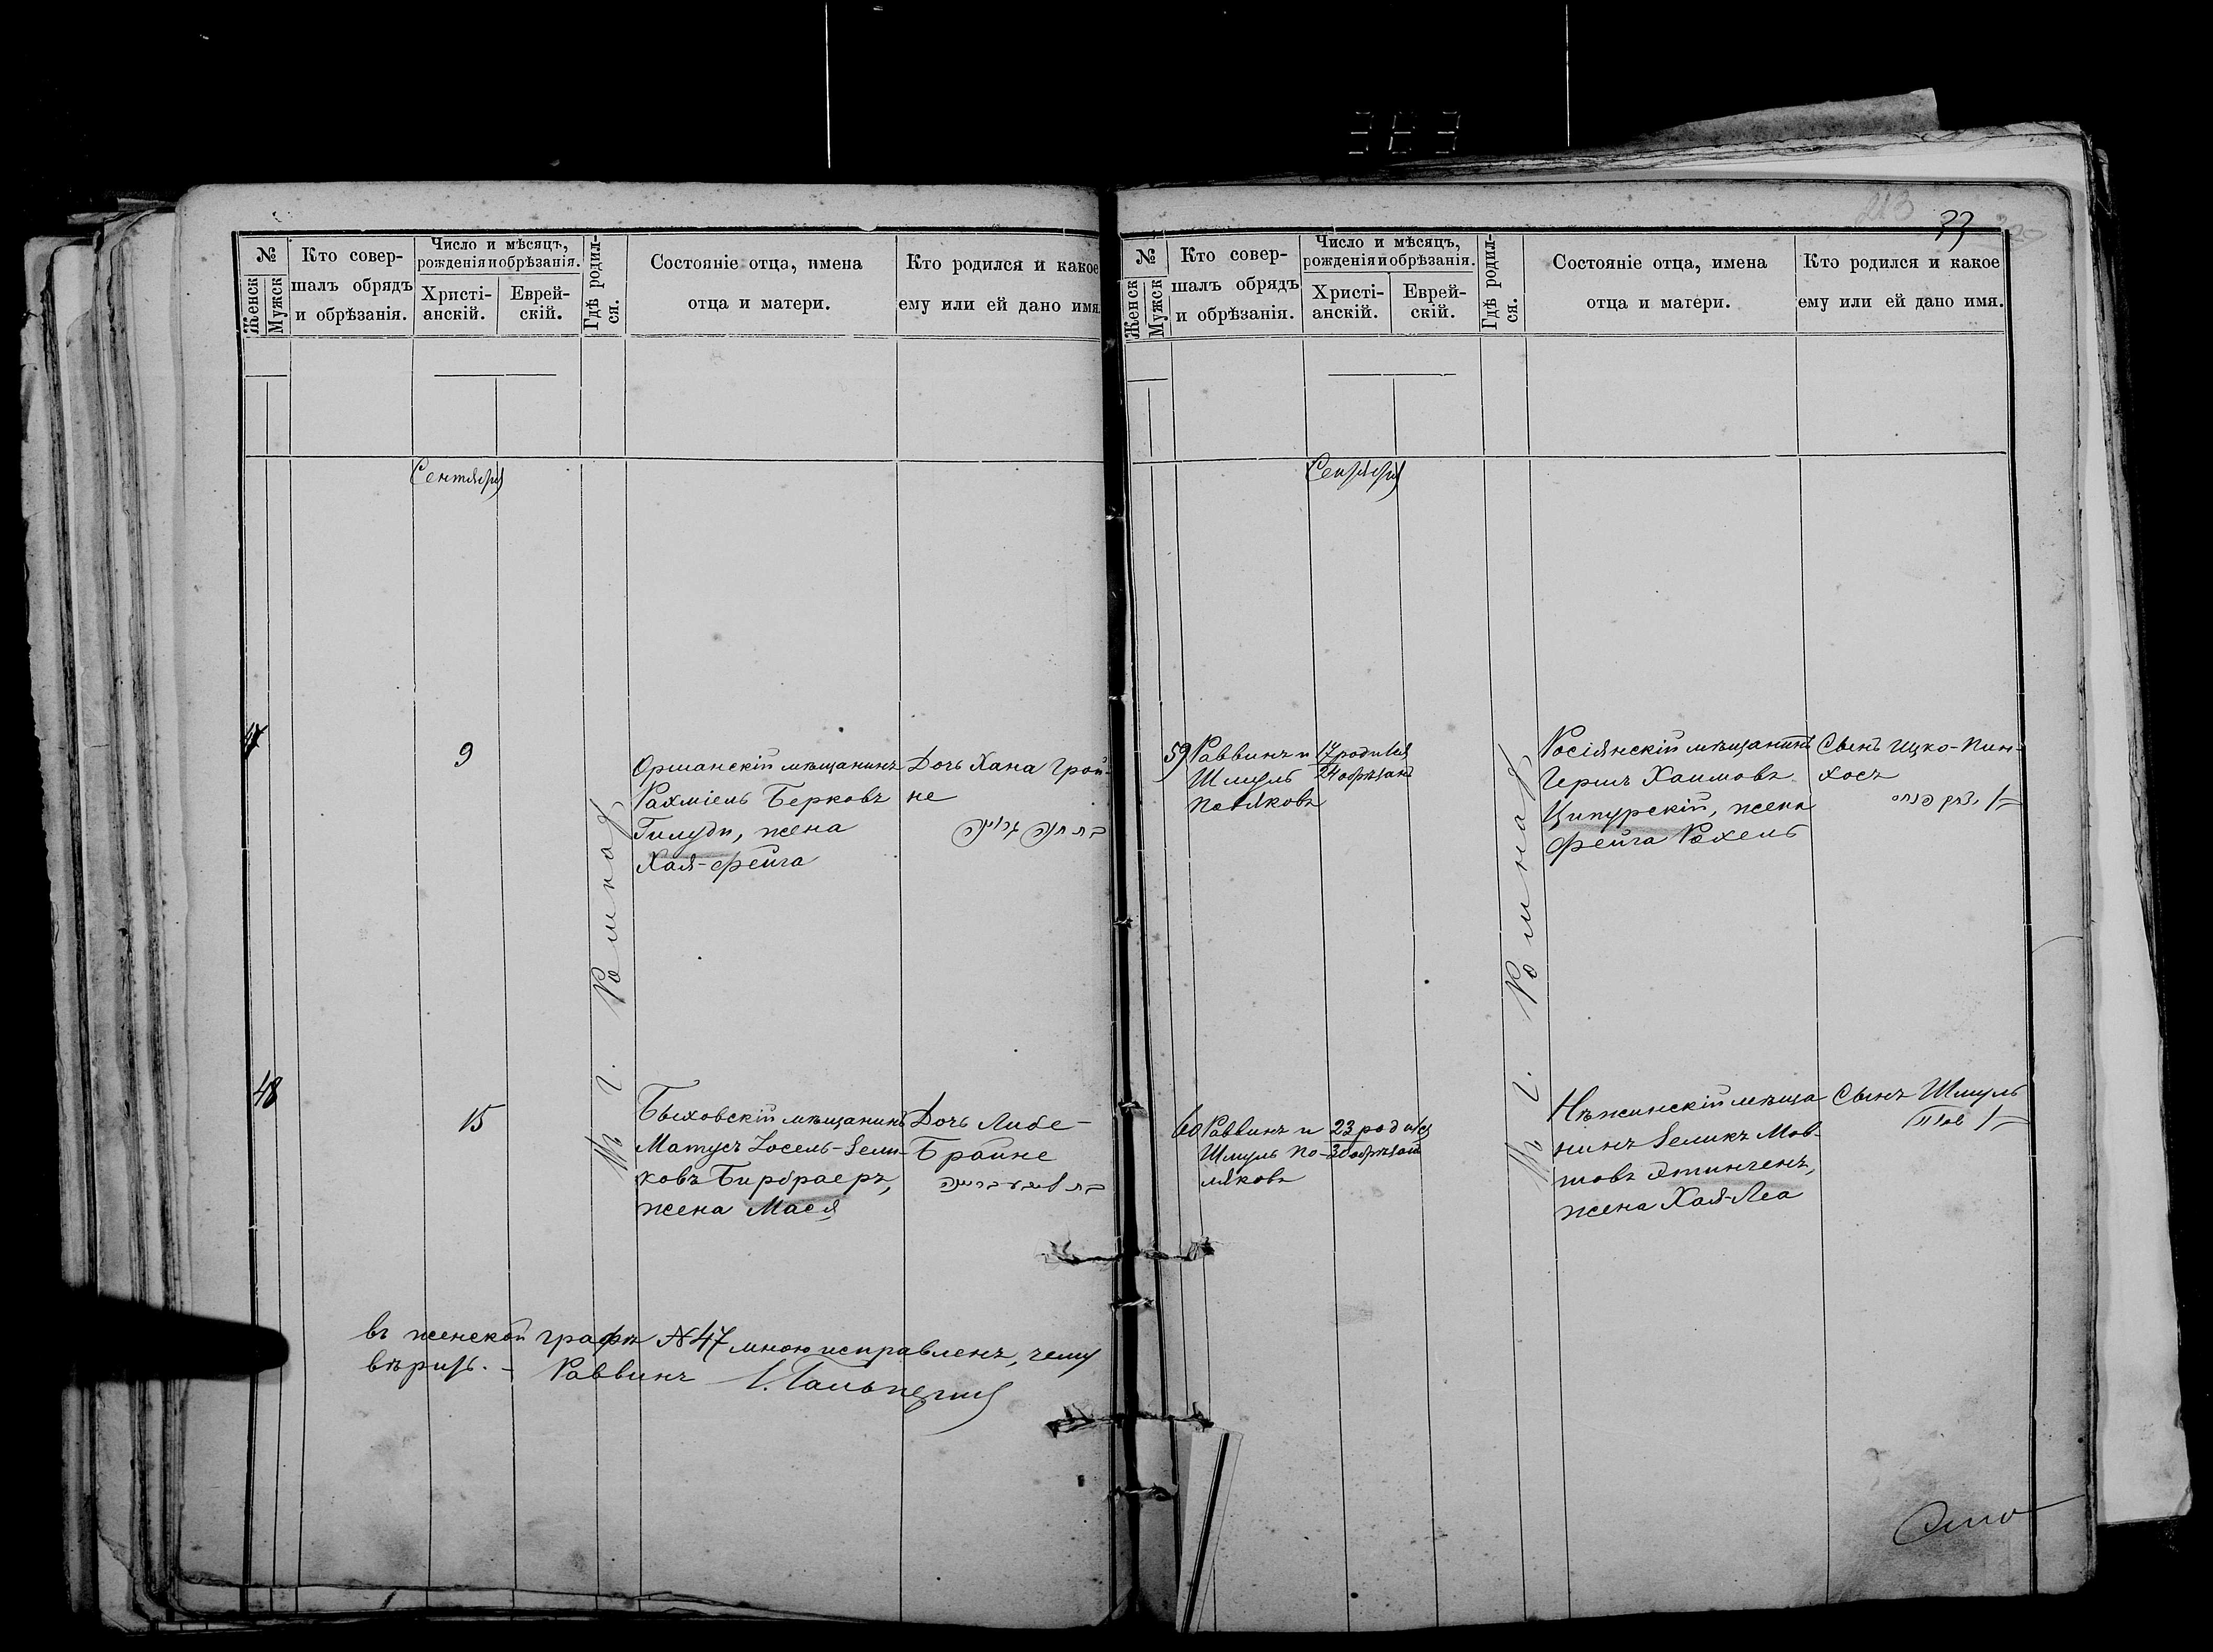 383
213
33
№
Женск
Мужск
Кто совер-
шалъ обрядъ
и обрѣзанія.
Число и мѣсяцъ,
рожденія и обрѣзанія.
Христі-
анскій.
Еврей-
скій.
Гдѣ родил-
ся.
Состояніе отца, имена
отца и матери.
Кто родился и какое
ему или ей дано имя.
Сентября
47
9
Въ г. Ромнахъ
Оршанскій мѣщанинъ
Рахміель Берковъ
Гилуди, жена
Хая-Фейга
Дочь Хана Грой-
не
48
15
Быховскій мѣщанинъ
Матусъ Іосель-Зели-
ковъ Бирбраеръ,
жена Мася
Дочь Либе-
Брайне
въ женской графѣ № 47 мною исправленъ, чему
вѣрить. - Раввинъ І. Гальперинъ
№
Женск
Мужск
Кто совер-
шалъ обрядъ
и обрѣзанія.
Число и мѣсяцъ,
рожденія и обрѣзанія.
Христі-
анскій.
Еврей-
скій.
Гдѣ родил-
ся.
Состояніе отца, имена
отца и матери.
Кто родился и какое
ему или ей дано имя.
Сентября
59
Раввинъ и
Шмуль
Поляковъ
17 родился
24 обрѣзанъ
Въ г. Ромнахъ
Росіянскій мѣщанинъ
Гершъ Хаимовъ
Ципурскій, жена
Фейга Рохель
Сынъ Ицко-Пин-
хосъ
60
Раввинъ и
Шмуль По-
ляковъ
23 родился
30 обрѣзанъ
Нѣжинскій мѣща
нинъ Зеликъ Мов-
шовъ Этингенъ,
жена Хая-Леа
Сынъ Шмуль